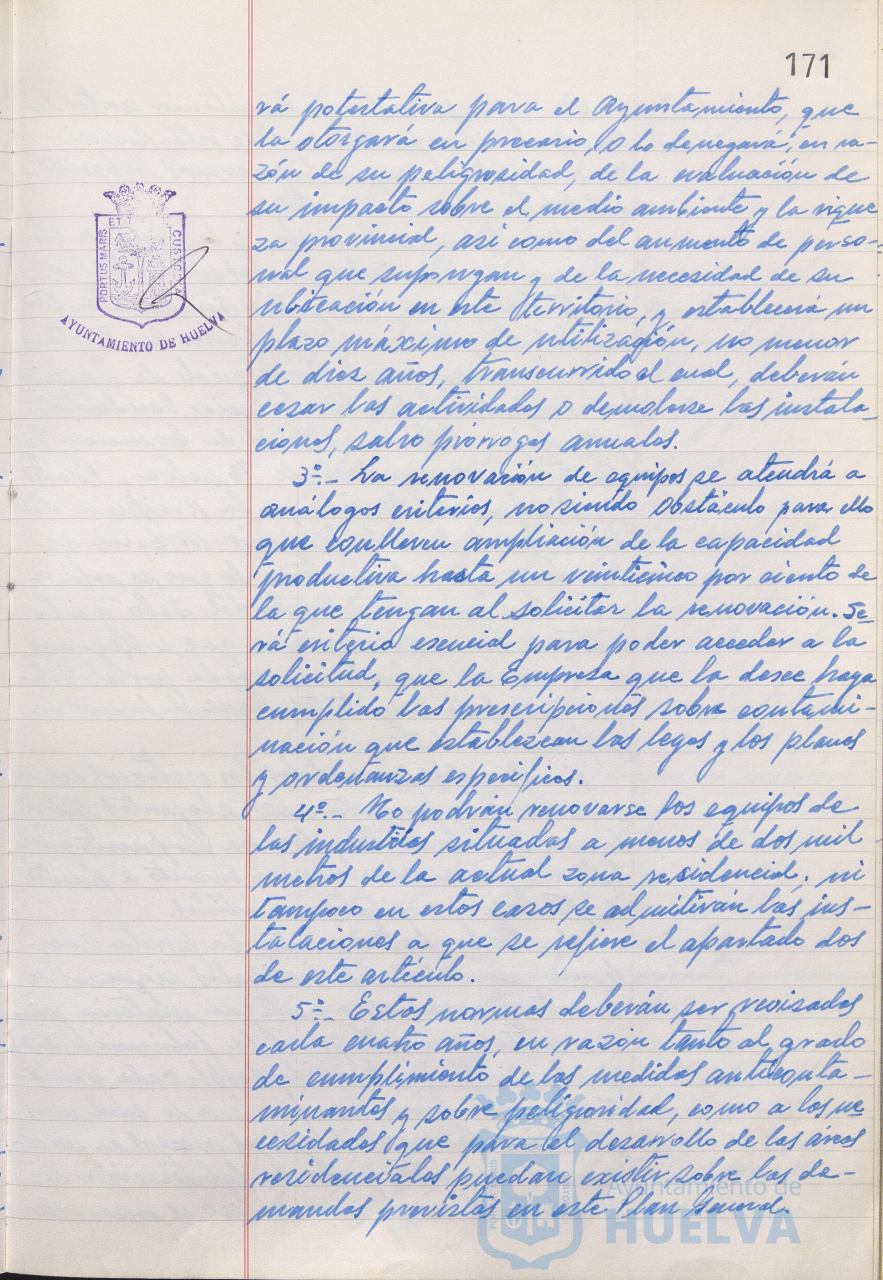 171
rá potestativa para el Ayuntamiento, que
la otorgará en precario, o lo denegará, en ra-
zón de su peligrosidad, de la evaluación de
su impacto sobre el medio ambiente y la rique
za provincial, asi como del aumento de perso-
nal que supongan y de la necesidad de su
ubicación en este territorio, y establecerá un
plazo máximo de utilización, no menor
de diez años, transcurrido el cual, deberán
cesar las actividades o demolerse las instala-
ciones, salvo prórrogas anuales.
3º.- La renovación de equipos se atendrá a
análogos criterios, no siendo obstáculo para ello
que conlleven ampliación de la capacidad
productiva hasta un veinticinco por ciento de
la que tengan al solicitar la renovación. Se-
rá criterio esencial para poder acceder a la
solicitud, que la Empresa que la desee haya
cumplido las prescripciones sobre contami-
nación que establezcan las leyes y los planes
y ordenanzas específicos.
4º.- No podrán renovarse los equipos de
las industrias situadas a menos de dos mil
metros de la actual zona residencial, ni
tampoco en estos casos se admitirán las ins-
talaciones a que se refiere el apartado dos
de este artículo.
5º.- Estas normas deberán ser revisadas
cada cuatro años, en razón tanto al grado
de cumplimiento de las medidas anticonta-
minantes y sobre peligrosidad, como a las ne
cesidades que para el desarrollo de las áreas
residenciales puedan existir sobre las de-
mandas previstas en este Plan General.
PORTUS MARIS ET T CUSTODIA
AYUNTAMIENTO DE HUELVA
Ayuntamiento de
HUELVA